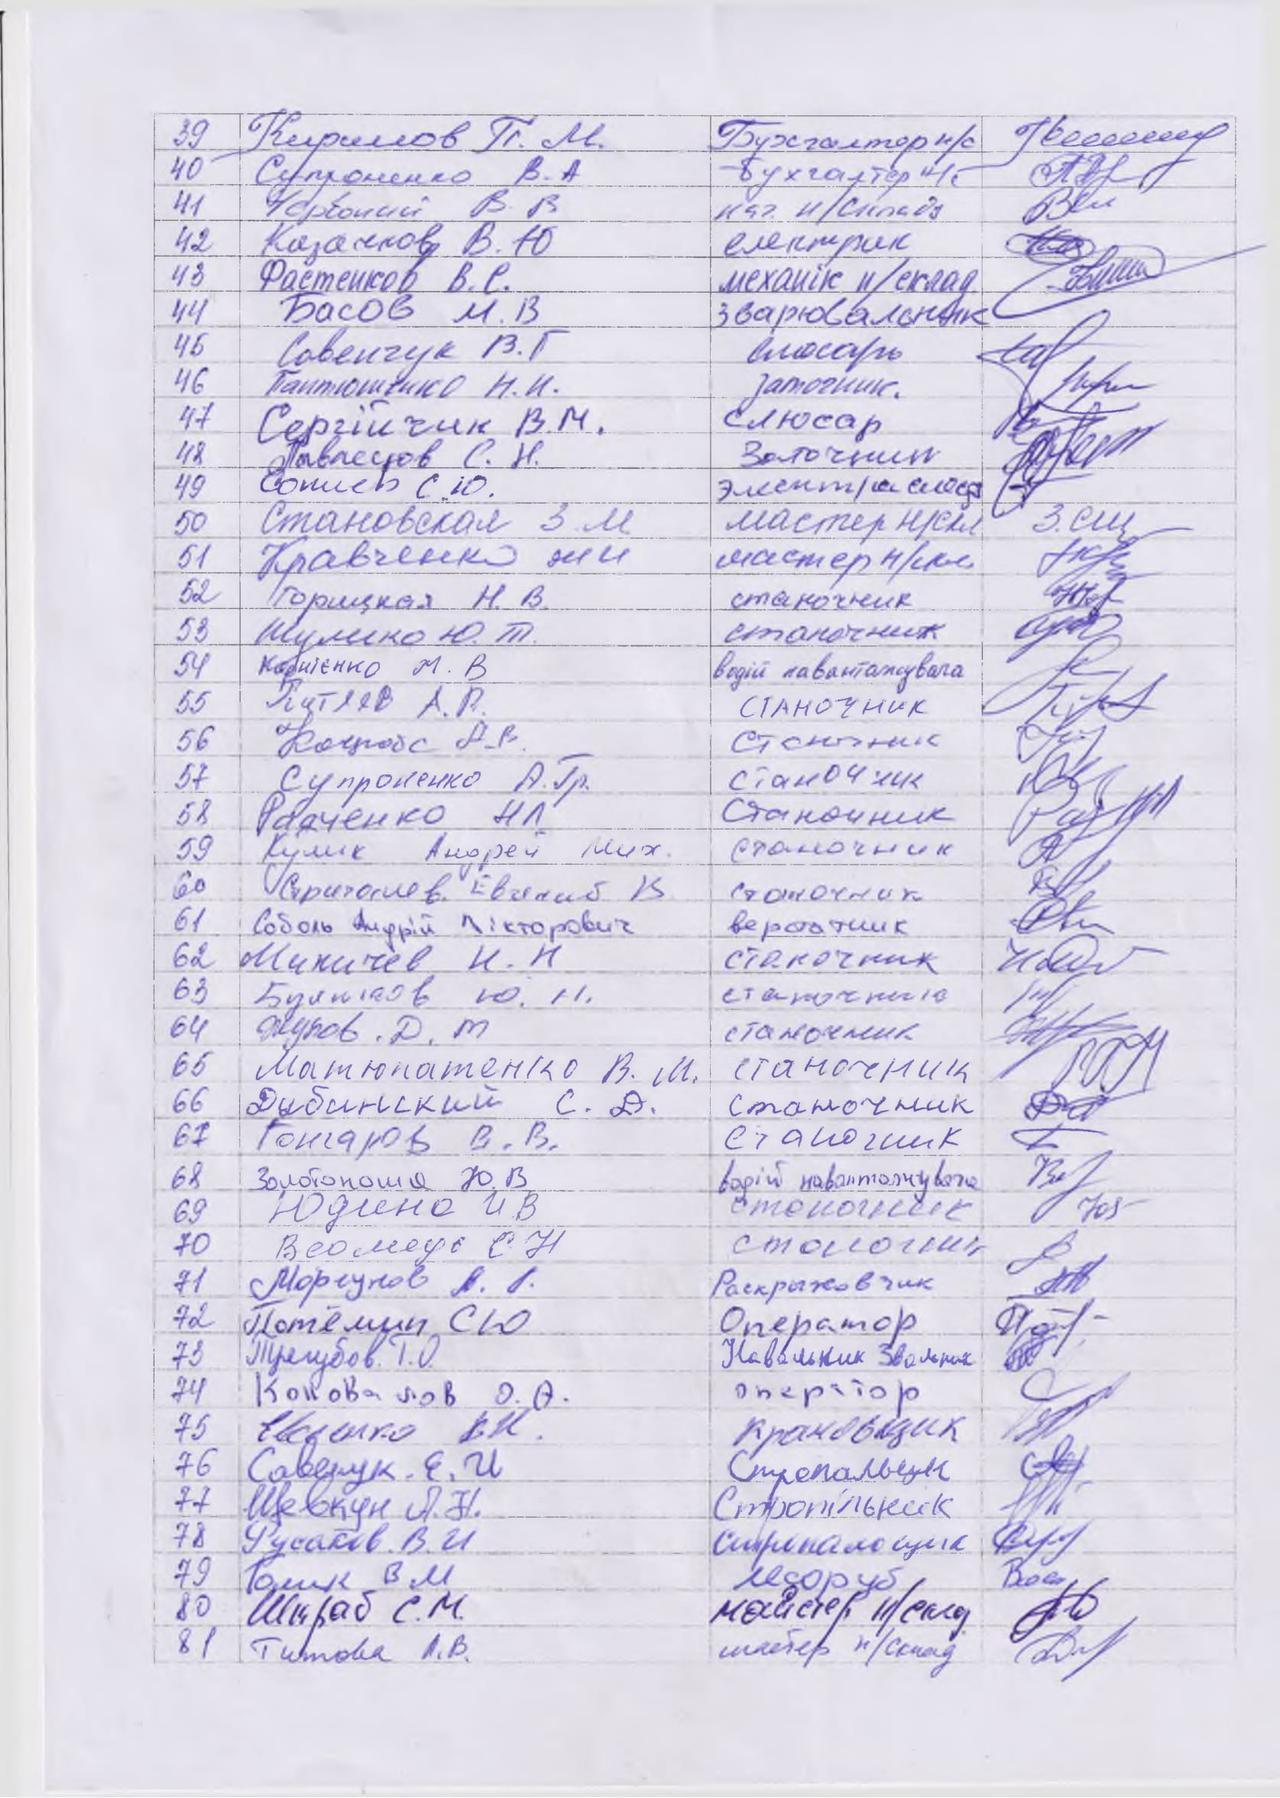 39 Кирилов П. М. Бухгалтер н/с
40 Супроненко В. А Бухгалтер н/с
41 В. В нач. н/склада
42 Казачков В. Ю електрик
43 Фастенков В. С. механік н/склад
44 Басов М. В зварювальник
45 Савенчук В. Г слюсарь
46 Н. И. заточник.
47 Сергійчик В. М. слюсар
48 С. Н. Заточник
49 С. Ю.
50 Становская З. М мастер н/скл З. СЩ
51 Кравченко мастер н/скл
52 Горицкая Н. В. станочник
53 Шулико Ю. Т. станочник
54 Корнієнко Н. В водій навантажувача
55 Путяев А. П. станочник
56 А. В. станочник
57 Супроненко А. Гр. станочник
58 Радченко Н Л станочник
59 Кулик Андрей Мих. станочник
60 Евгений В станочник
61 Соболь Андрій Вікторович верстатник
62 Миничев Н. Н станочник
63 Ю. Н. станочник
64 Жуков. Д. Т станочник
65 Матюпатенко В. М. станочник
66 Дубинский С. Д. станочник
67 Гончаров В. В. станочник
68 Золотоноша Ю. В водій навантажувача
69 Юдина И В станочник
70 С Н станочник
71 Моргунов Раскряжовчик
72 Потёмин С Ю Оператор
73 Т. О.
74 Коновалов О. О. оператор
75 Ивашко крановщик
76 Савенчук. Е. И Стропальщик
77 Шевкун А. Н. Стропільник
78 Русаков. В. И стропалощик
79 Голик В М лісоруб
80 Шкраб С. М. майстер н/склад
81 Титова Л. В. мастер н/склад